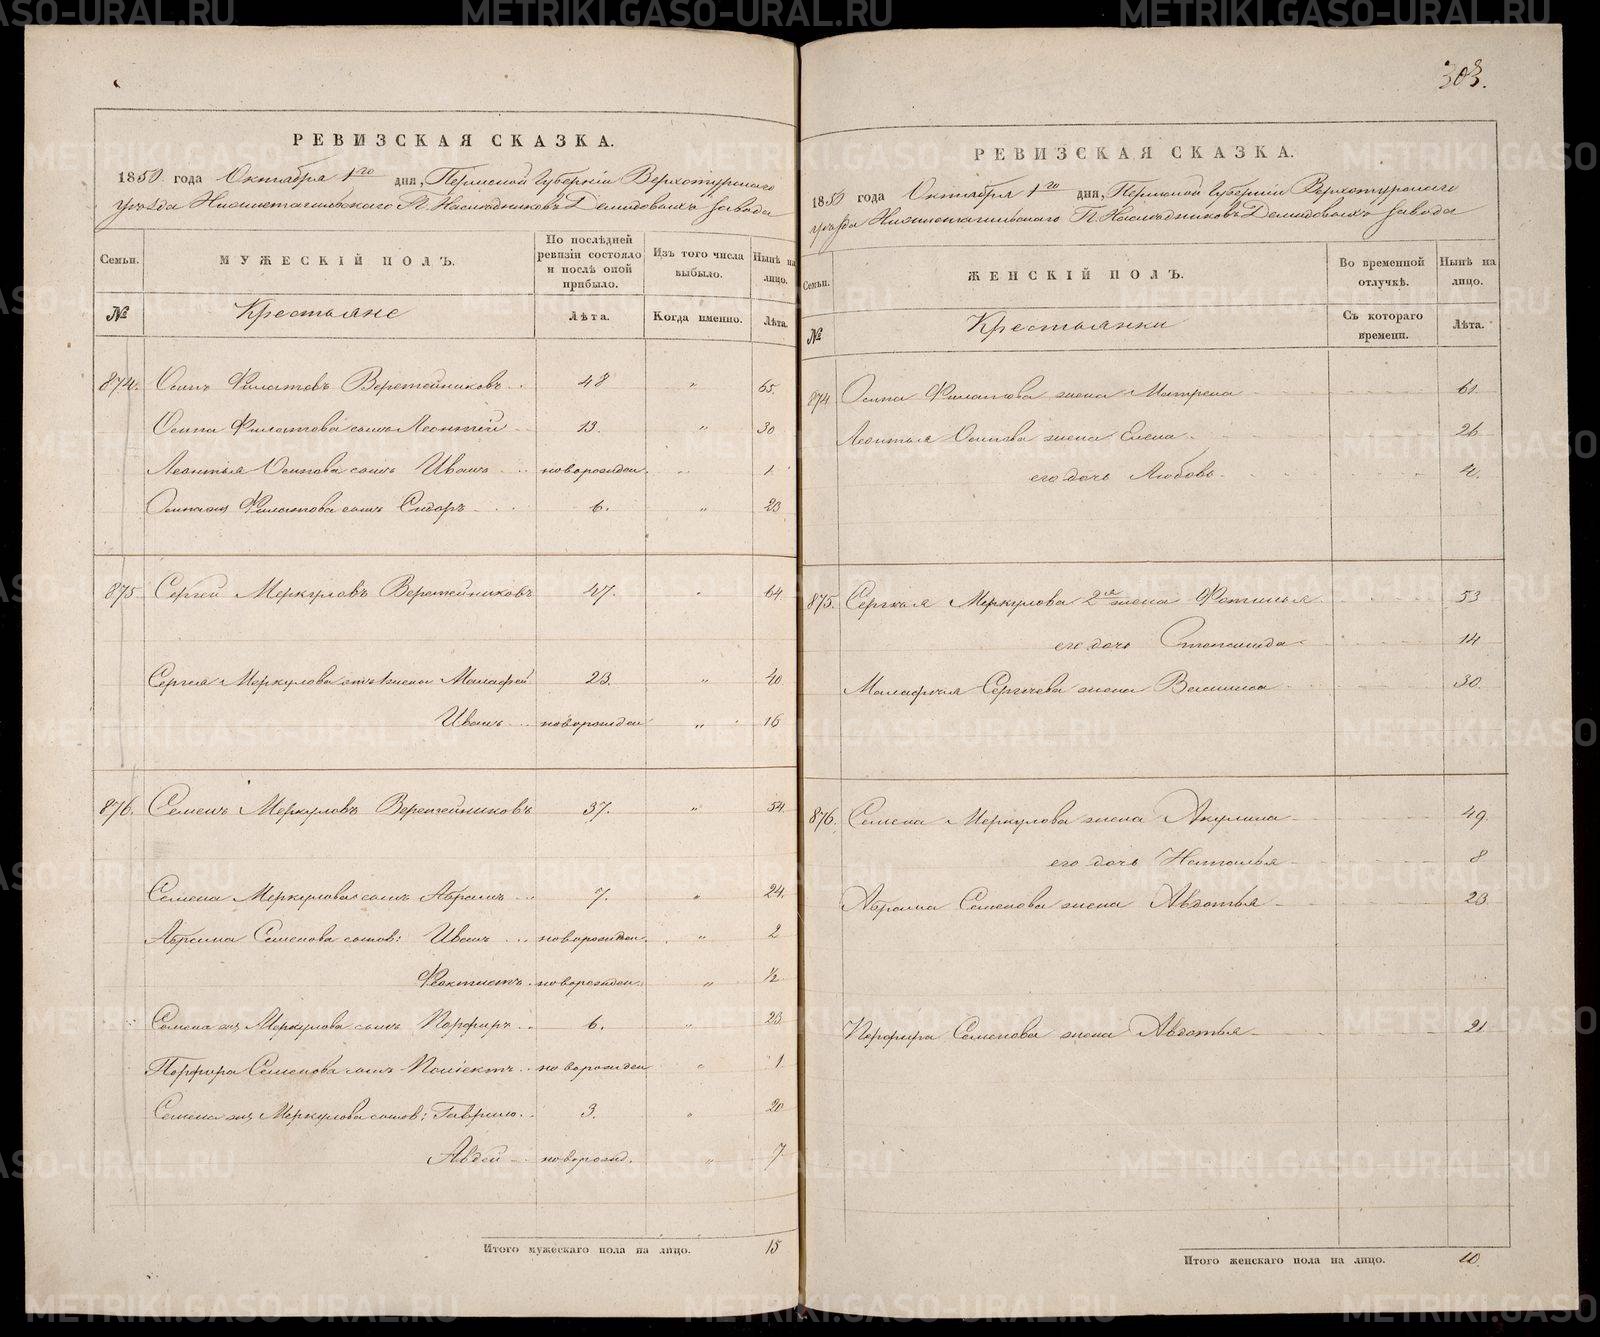 303.
РЕВИЗСКАЯ СКАЗКА.
1850 года Октября 1го дня, Пермской Губерніи Верхотурскаго
уѣзда Нижнетагильскаго П. Наслѣдниковъ Демидовыхъ завода
Семьи. МУЖЕСКІЙ ПОЛЪ. По послѣдней ревизіи состояло и послѣ оной прибыло. Изъ того числа выбыло. Нынѣ на лицо.
№ Крестьяне Лѣта. Когда именно. Лѣта.
874. Осипъ Филатовъ Веретейниковъ 48 " 65.
Осипа Филатова сынъ Леонтій 13. " 30
Леонтья Осипова сынъ Иванъ новорожден. " 1
Осипа жъ Филатова сынъ Сидоръ 6. " 23
875 Сергей Меркуловъ Веретейниковъ 47. " 64
Сергея Меркулова Малафей 23. " 40
Иванъ новорожден " 16
876. Семенъ Меркуловъ Веретейниковъ 37. " 54
Семена Меркулова сынъ Абрамъ 7. " 24.
Абрама Семенова сынов: Иванъ новорожден. " 2
Феоктистъ новорожден. " ½
Семена жъ Меркулова сынъ Порфиръ 6. " 23
Порфира Семенова сынъ Поліектъ новорожден " 1
Семена жъ Меркулова сынов: Гаврило 3. " 20
Авдей новорожд. " 7
Итого мужескаго пола на лицо. 15
РЕВИЗСКАЯ СКАЗКА.
1850 года Октября 1го дня, Пермской Губерніи Верхотурскаго
уѣзда Нижнетагильскаго П. Наслѣдниковъ Демидовыхъ завода
Семьи. ЖЕНСКІЙ ПОЛЪ. Во временной отлучкѣ. Нынѣ на лицо.
№ Крестьянки Съ котораго времени. Лѣта.
874 Осипа Филатова жена Матрена 61
Леонтья Осипова жена Елена 26
его дочь Любовь
875. Сергея Меркулова 2я жена Фотинья 53
его дочь Степанида 14
Малафея Сергеева жена Васиниса 30
876. Семена Меркулова жена Акулина 49.
его дочь Наталья 8
Абрама Семенова жена Авдотья 23
Порфира Семенова жена Авдотья 21
Итого женскаго пола на лицо. 10.
METRIKI.GASO-URAL.RU